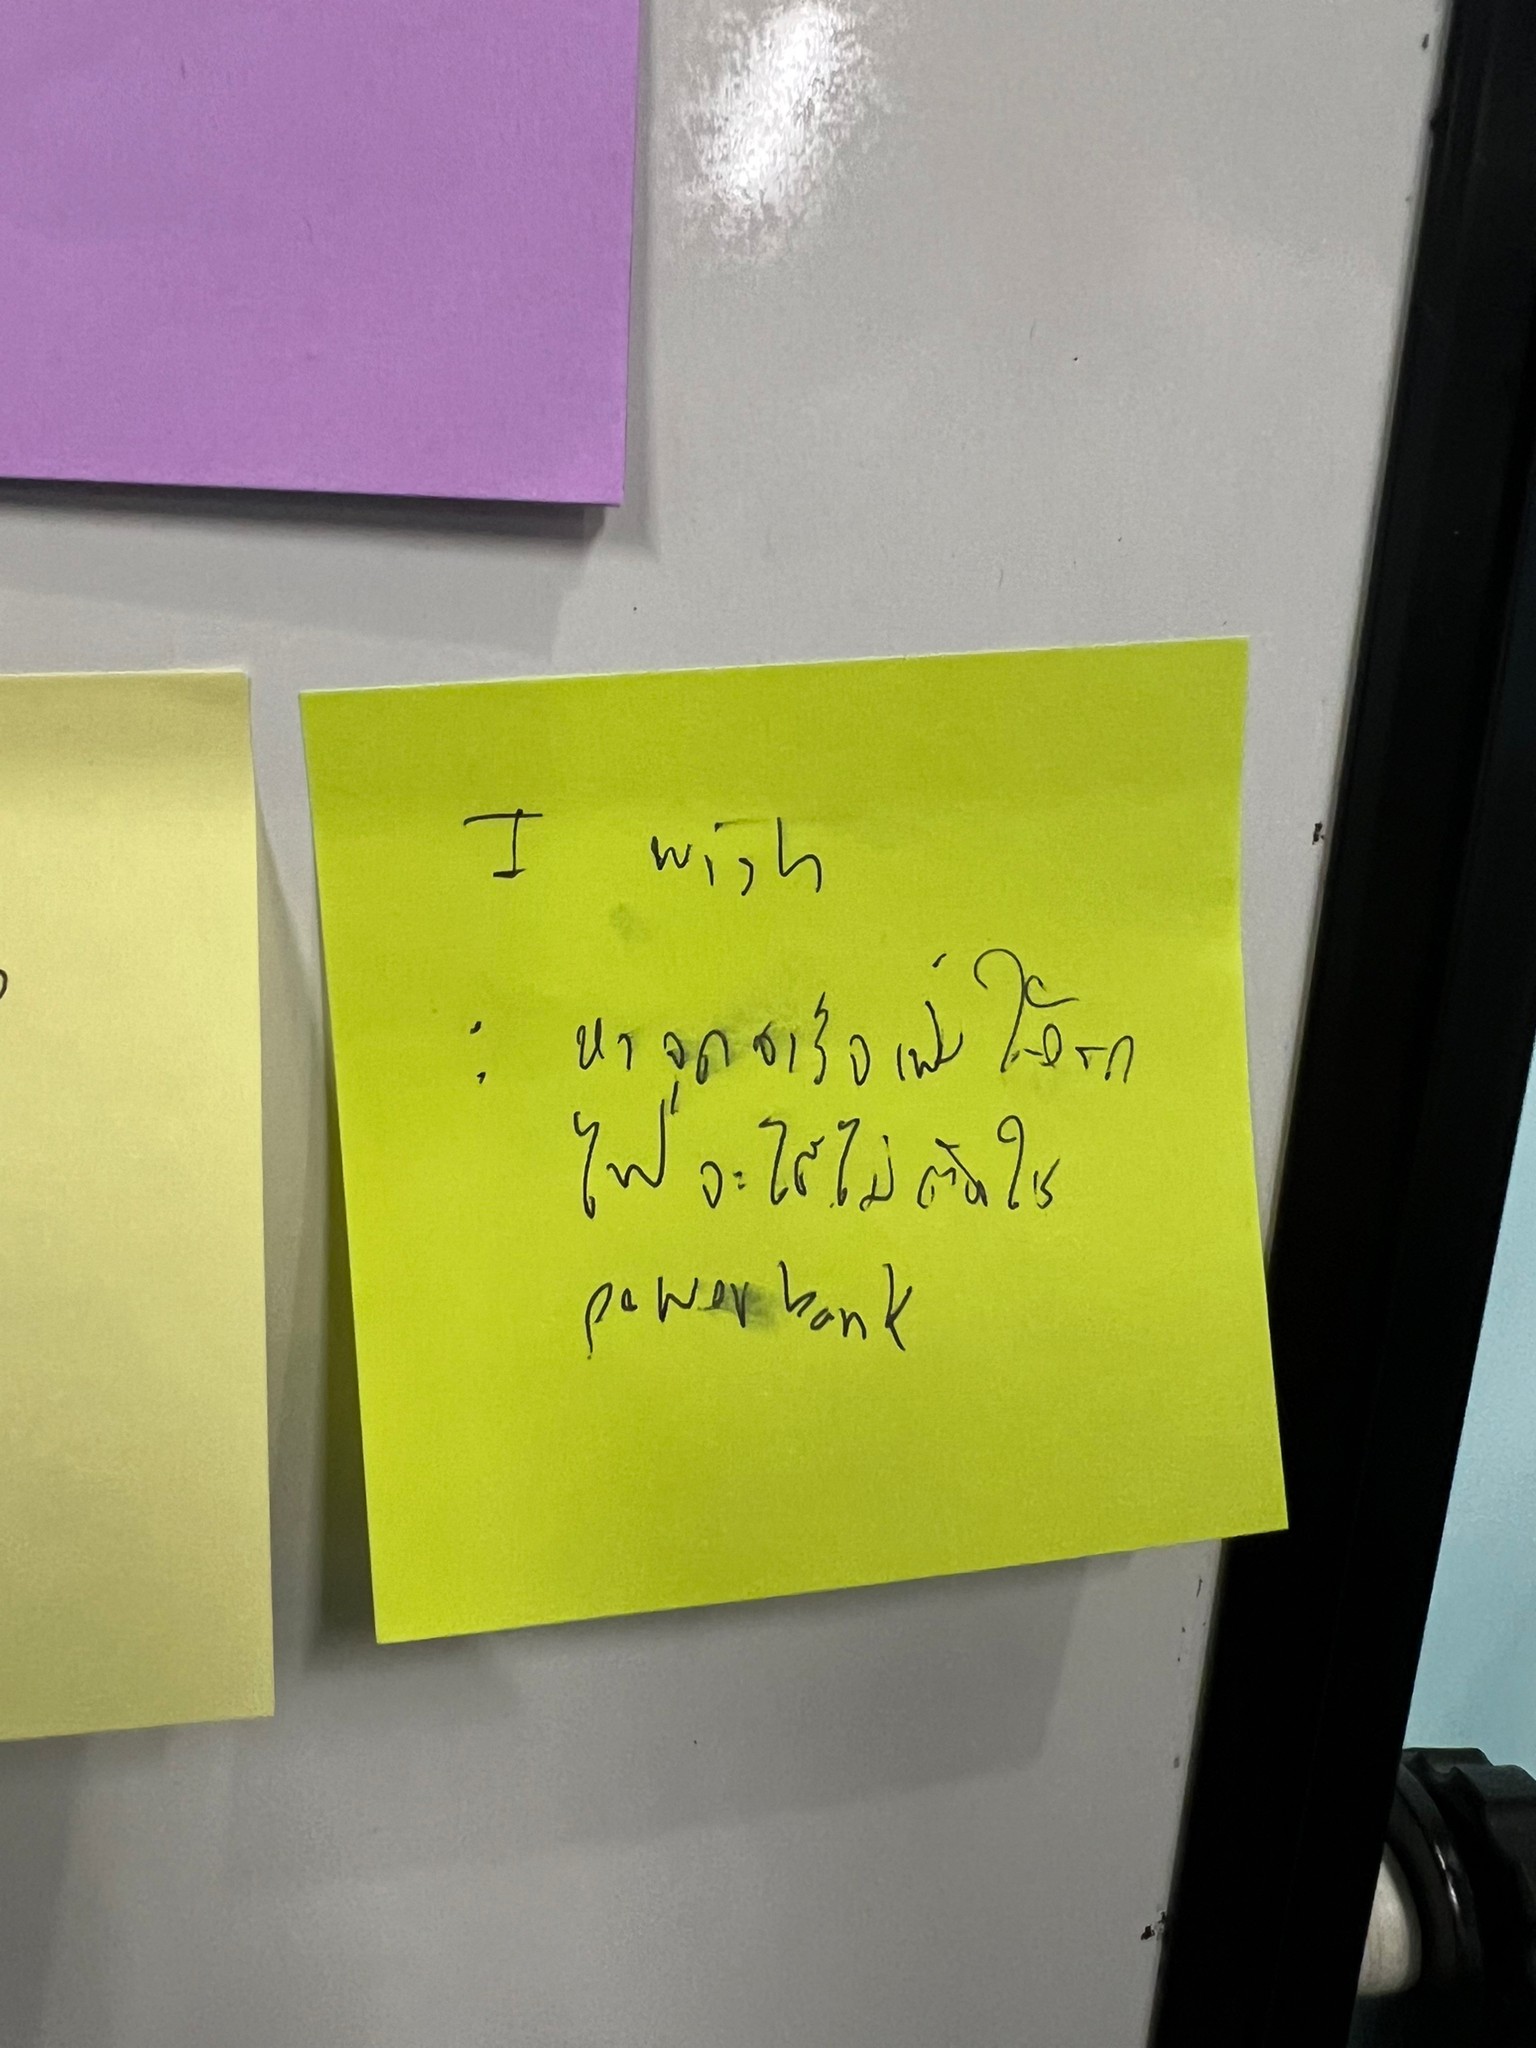 I wish
: หาจุดชาร์จ ได้จาก
ไฟ จะได้ไม่ต้องใช้
power bank